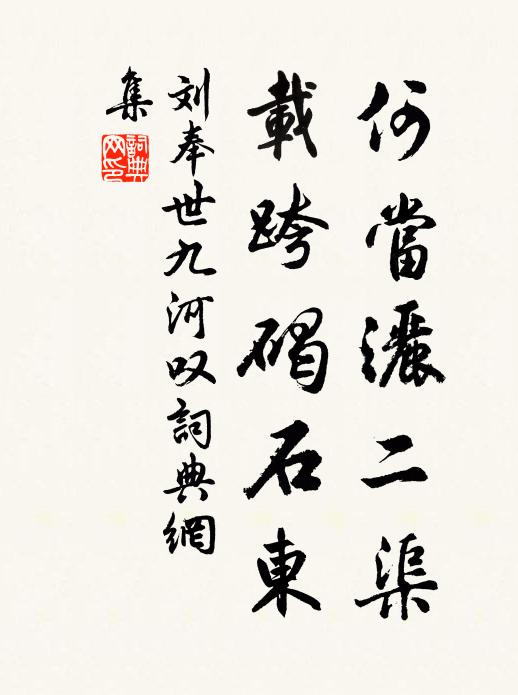 何當灑二渠
載跨碣石東
刘奉世九河叹詞典網
集
詞典網印